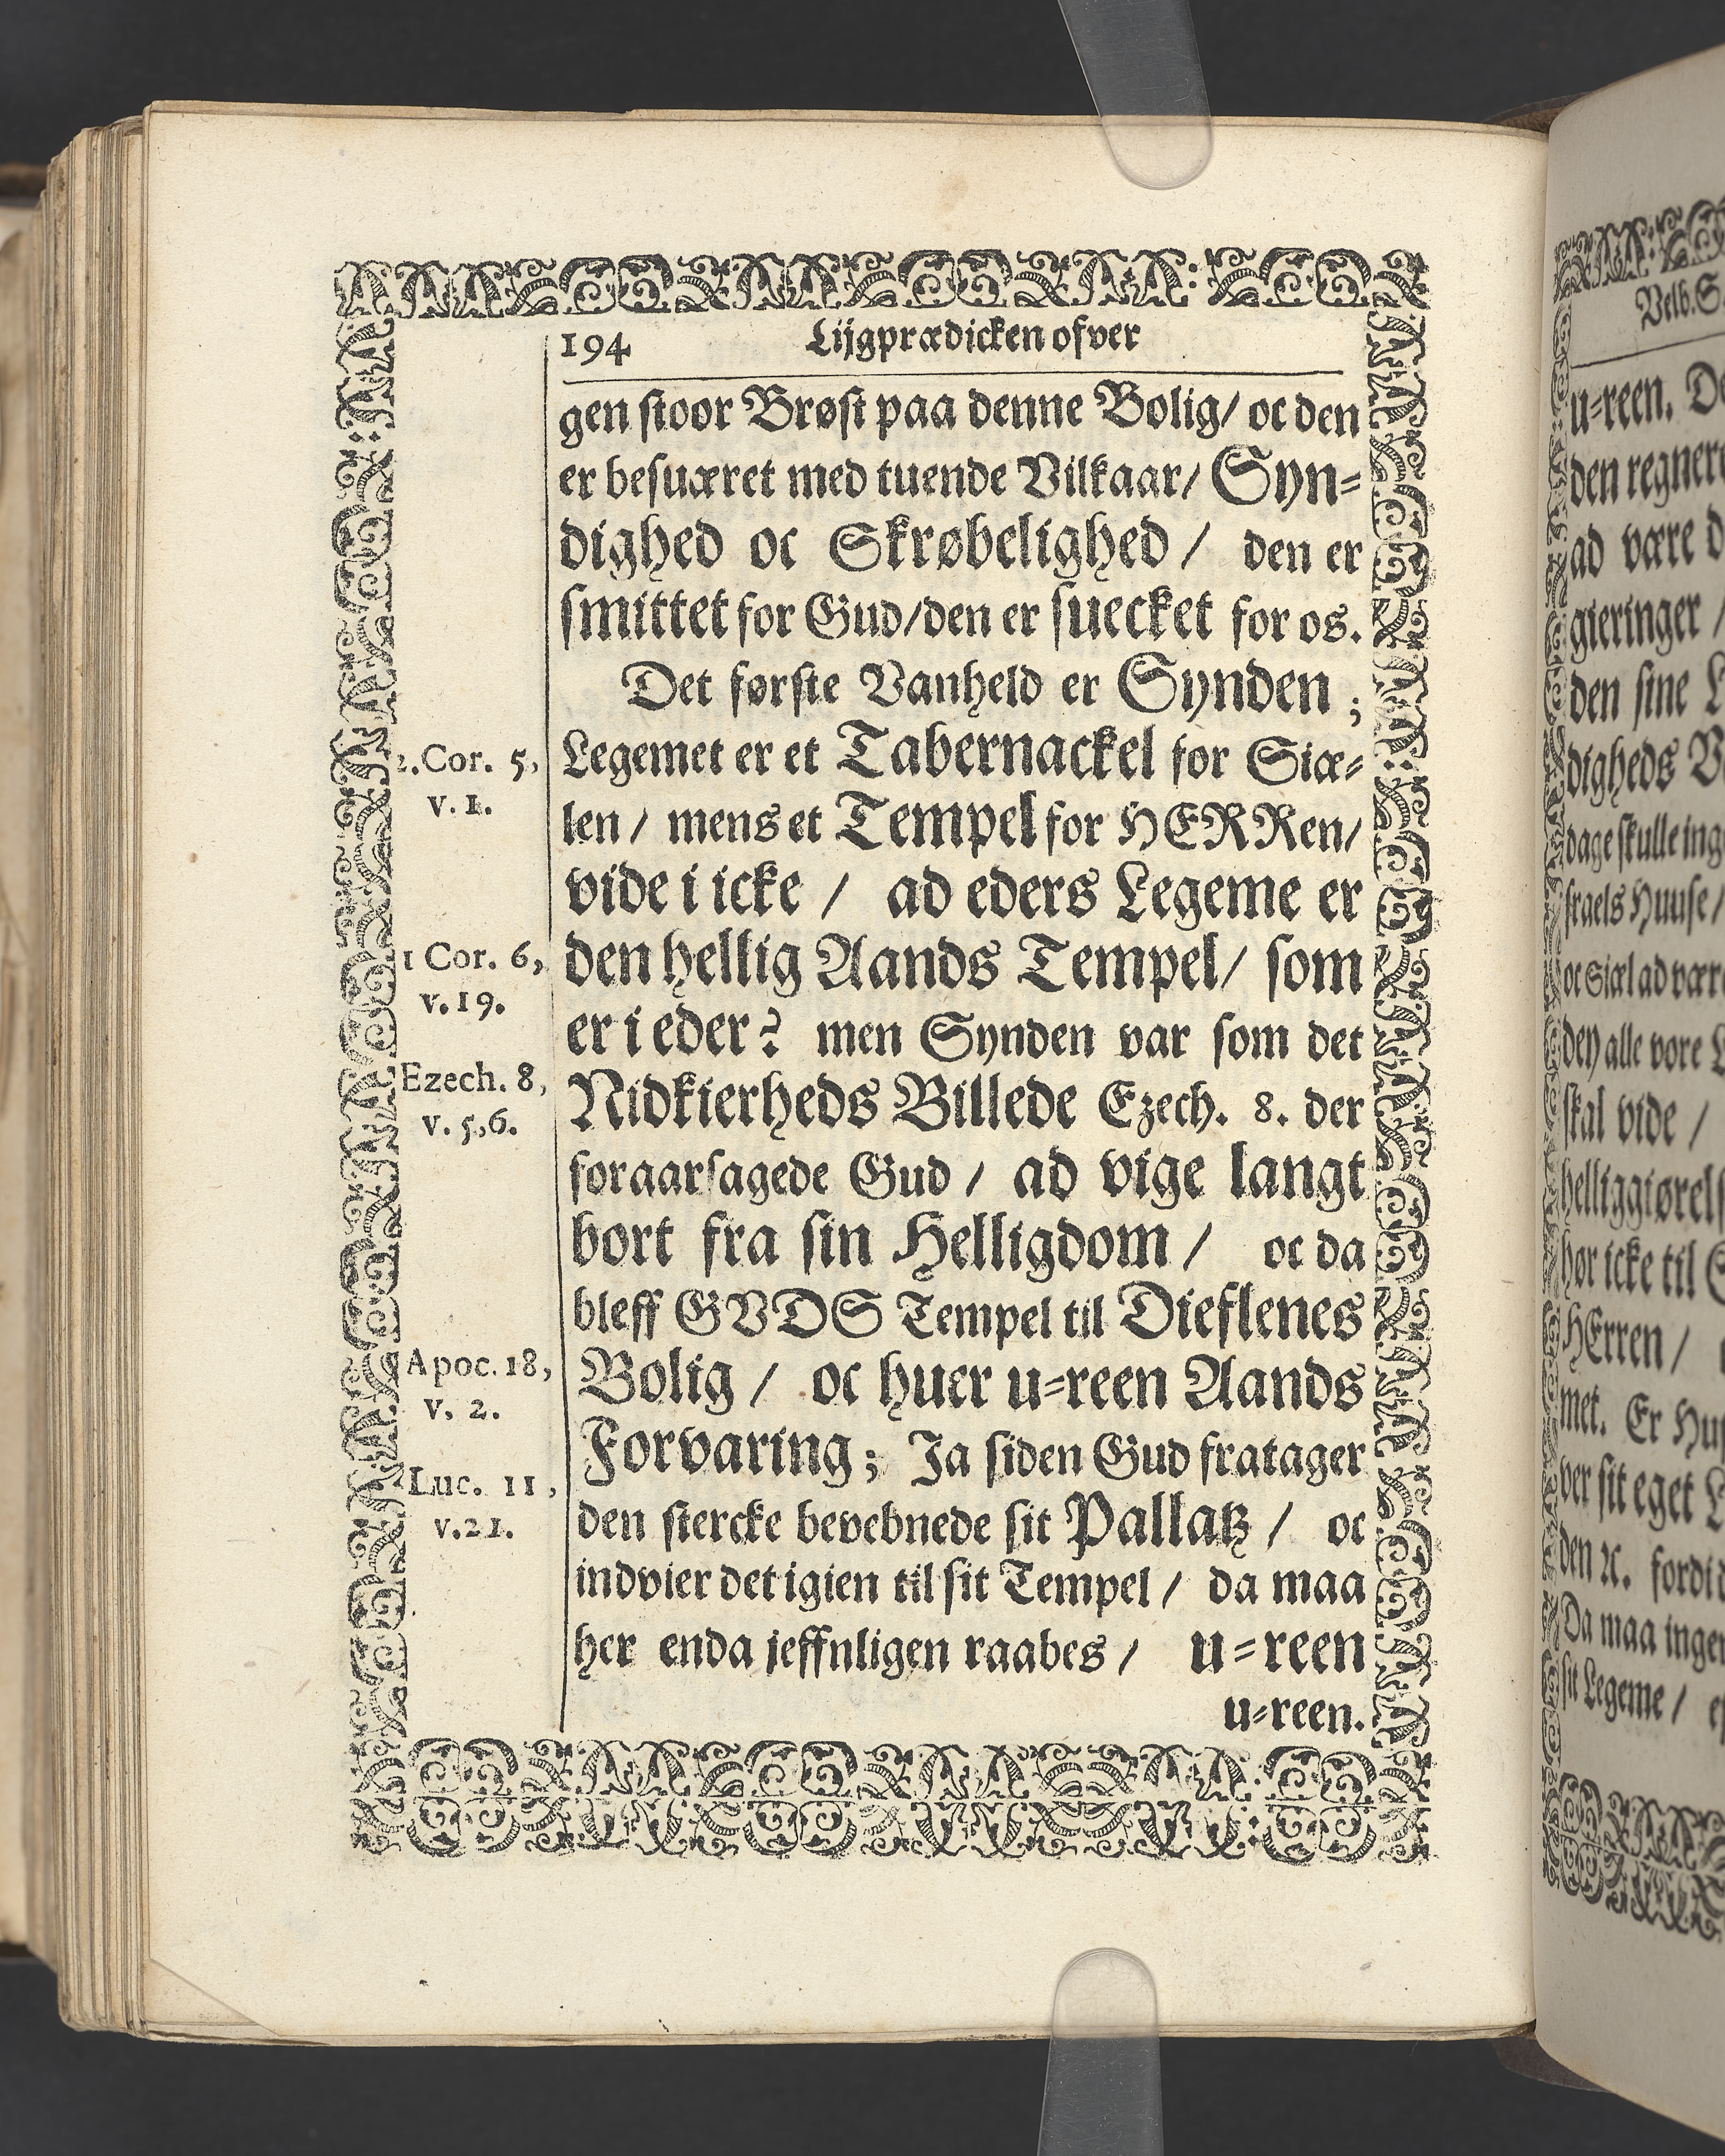 194 Lijgprædicken ofver
gen stoor Brøst paa denne Bolig/ oc den
er besuæret med tuende Vilkaar/ Syn-
dighed oc Skrøbelighed / den er
smittet for Gud/den er suecket for os.
Det første Vanheld er Synden ;
Legemet er et Tabernackel for Siæ-
len / mens et Tempel for HERRen/
vide i icke / ad eders Legeme er
den hellig Aands Tempel/ som
er i eder? men Synden var som det
Nidkierheds Billede Ezech. 8. der
foraarsagede Gud / ad vige langt
bort fra sin Helligdom / oc da
bleff GVDS Tempel til Dieflenes
Bolig / oc huer u-reen Aands
Forvaring; Ja siden Gud fratager
den stercke bevebnede sit Pallatz / oc
indvier det igien til sit Tempel / da maa
her enda jeffnligen raabes / u-reen
u-reen.
2.Cor. 5,
v. 1.
1 Cor. 6,
v. 19.
Ezech. 8,
v. 5,6.
Apoc. 18,
v. 2.
Luc. 11,
v. 21.
Velb. S
u-reen. De
den regner
ad være d
gieringer /
den sine L
digheds V
dage skulle ing
fraels Huuse/
oc Siæl ad vær
den alle vore L
skal vide /
helliggiørels
hør icke til S
HErren /
met. Er Hu
ver sit eget L
den ꝛc. fordi
Da maa inge
sit Legeme /